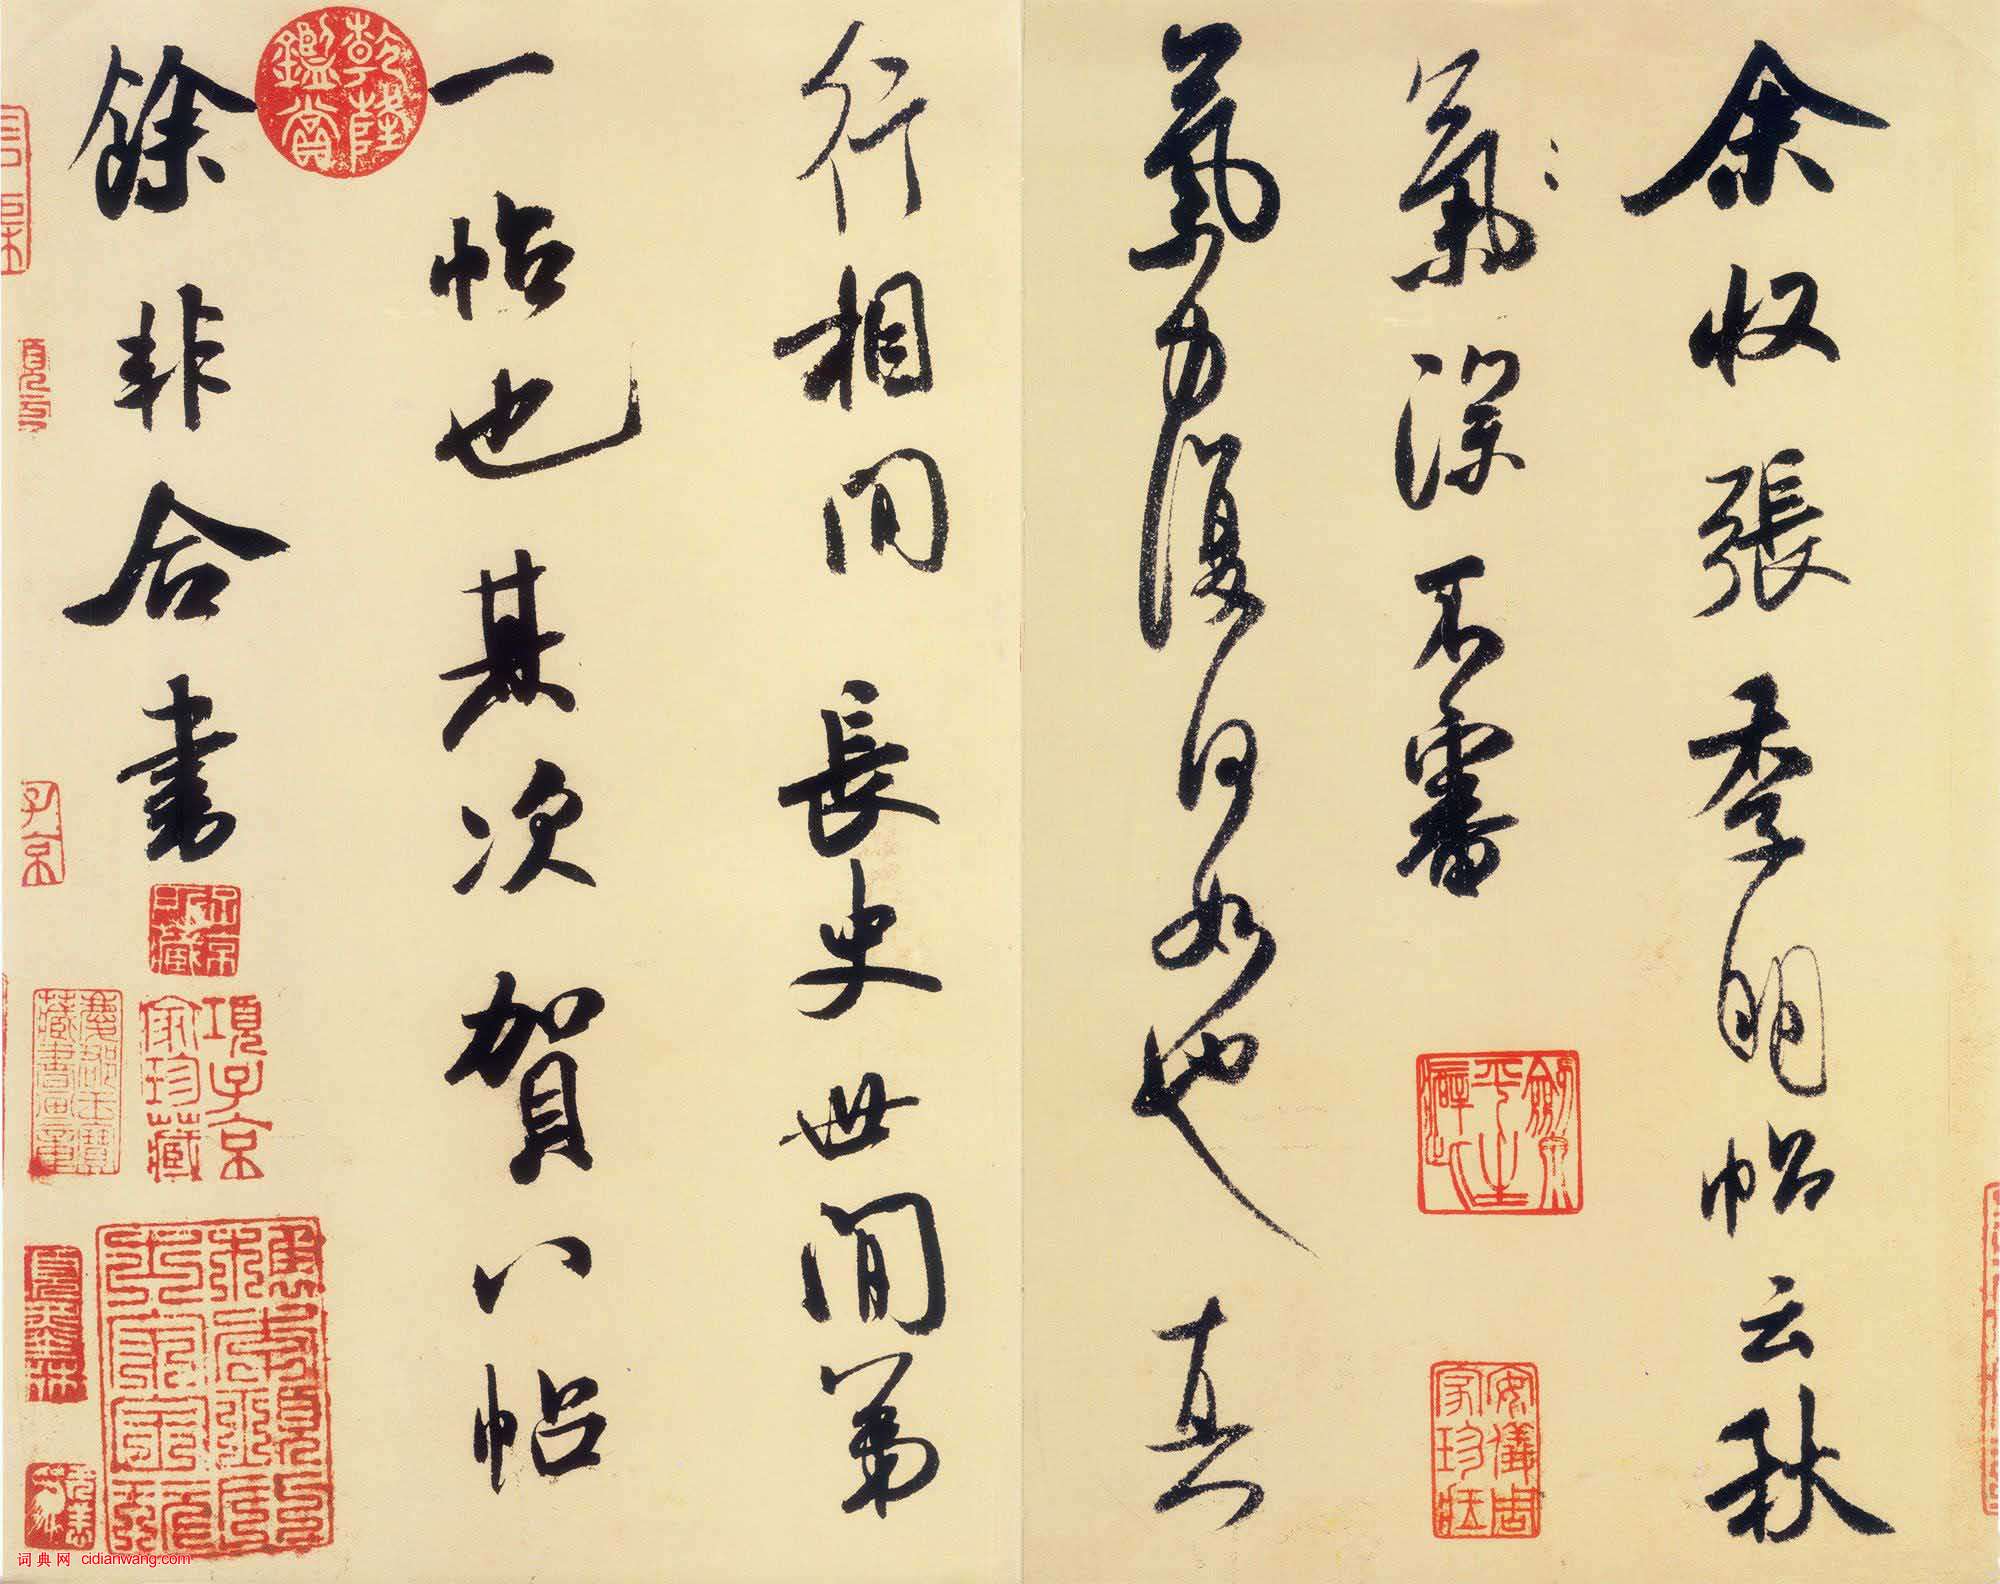 余收張季明帖云秋
氣深不審
氣力復何如也真
行相間長史世間第
一帖也其次賀八帖
餘非合書
乾隆鑑賞
項子京家珍藏
安儀周家珍藏
子京
词典网 cidianwang.com